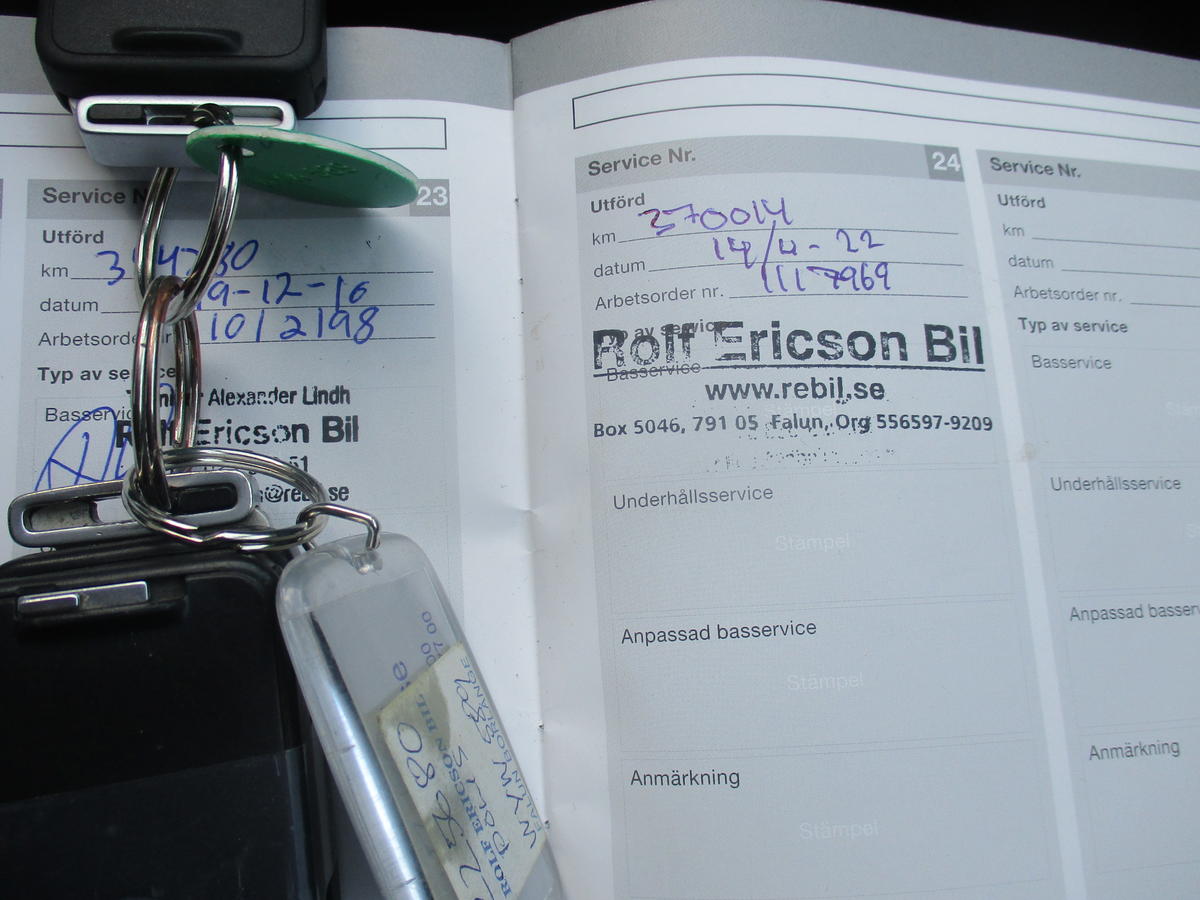 Service
23
Utförd
km
datum 19-12-16
Arbetsorder 1012198
Typ av service
Basservice
Alexander Lindh
Rolf Ericson Bil
51
s@rebil.se
Service Nr. 24
Utförd
km 370014
datum 14/4-22
Arbetsorder nr. 1117969
Typ av service
Rolf Ericson Bil
Basservice
www.rebil.se
Stämpel
Box 5046, 791 05 Falun, Org 556597-9209
Underhållsservice
Stämpel
Anpassad basservice
Stämpel
Anmärkning
Stämpel
Service Nr.
Utförd
km
datum
Arbetsorder nr.
Typ av service
Basservice
Underhållsservice
Anpassad basserv
Anmärkning
ROLF ERICSON BIL
FALUN BORLÄNGE
WYW 801